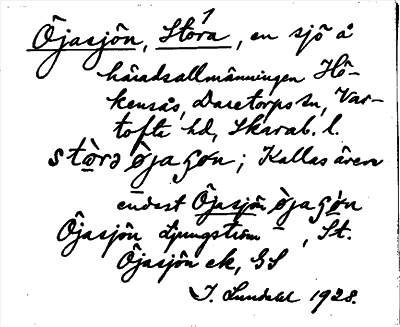 Öjasjön, Stora, en sjö å
häradsallmänningen Hö-
kensås, Daretorps sn, Var-
tofta hd, Skarab. l.
störa öjaʃön; Kallas även
endast Öjasjön öjaʃön
Öjasjön Ljungström, St.
Öjasjön ek, GS
J. Lundahl 1928.